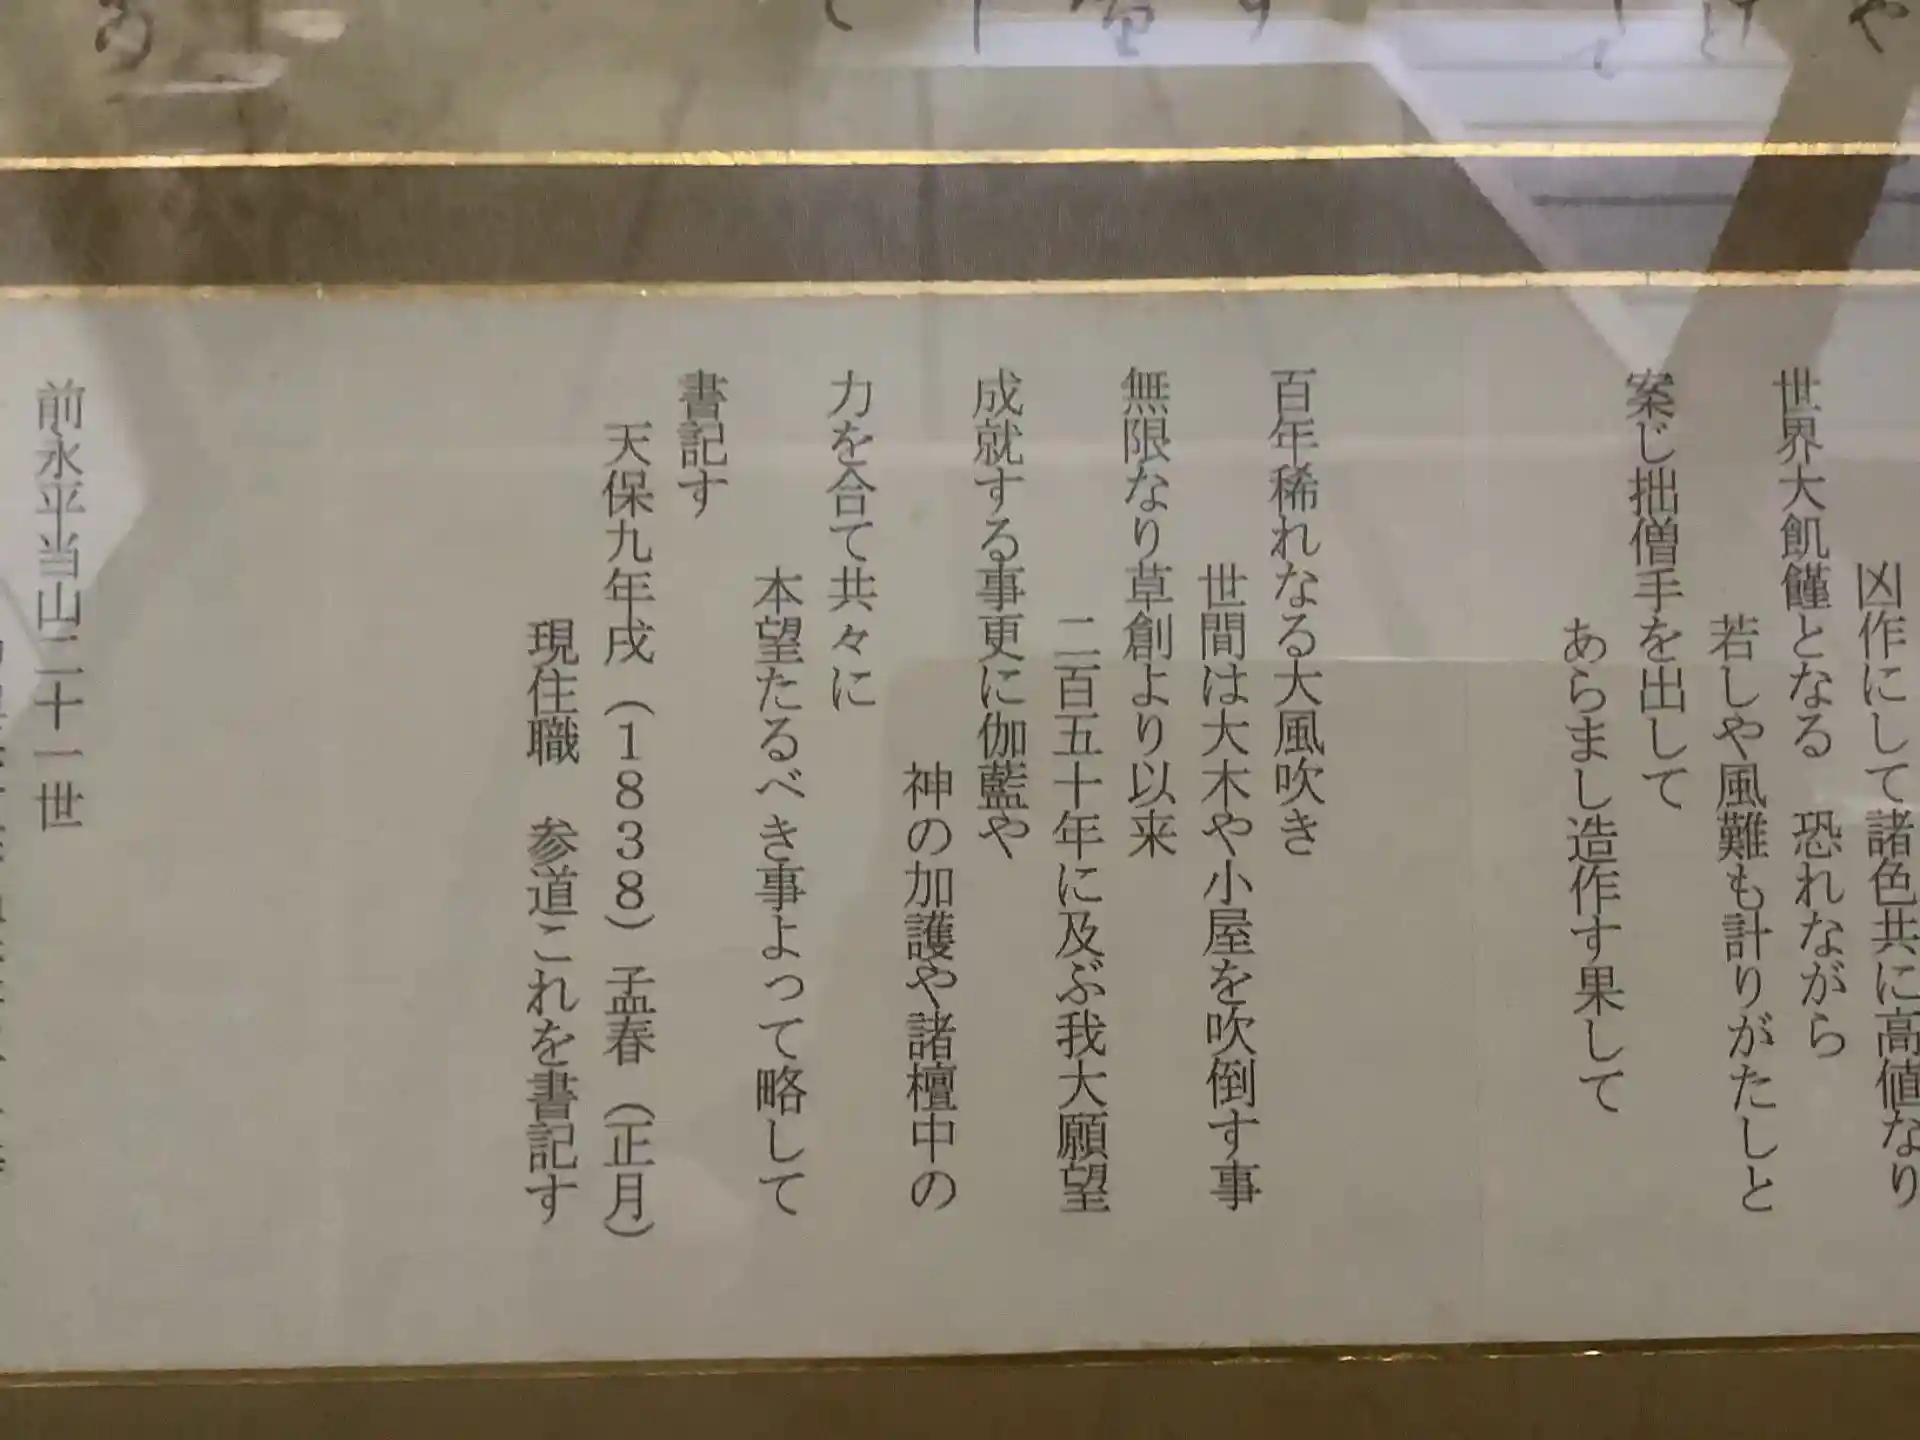 凶作にして諸色共に高値なり
世界大飢饉となる　恐れながら
若しや風難も計りがたしと
案じ拙僧手を出して
あらまし造作す果して
百年稀れなる大風吹き
世間は大木や小屋を吹倒す事
無限なり草創より以来
二百五十年に及ぶ我大願望
成就する事更に伽藍や
神の加護や諸檀中の
力を合て共々に
本望たるべき事よって略して
書記す
天保九年戌（1838）孟春（正月）
現住職　参道これを書記す
前永平当山二十一世